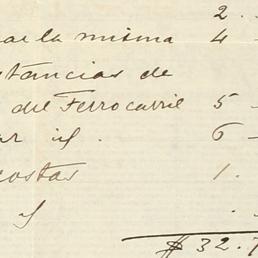 2.
la misma 4 -
tancias de
del Ferrocarril 5 -
ar id. 6 -
costas 1.
$ 32.7